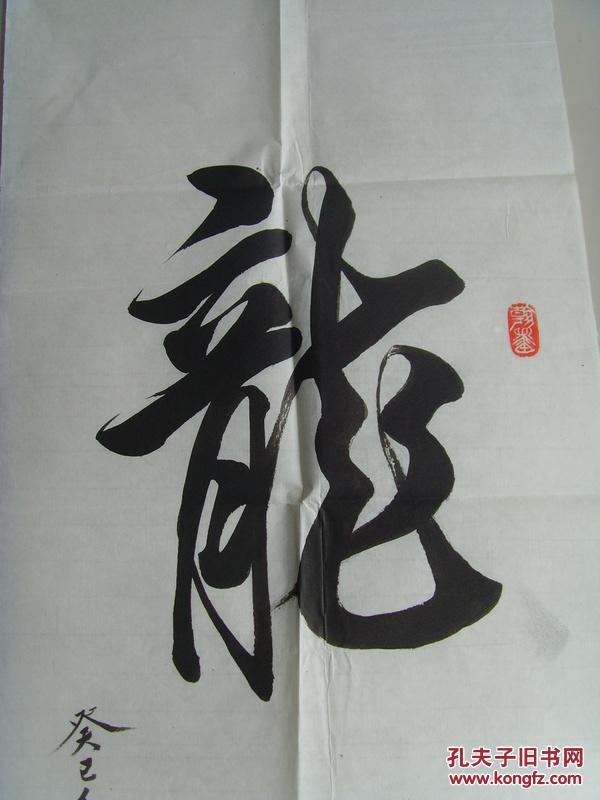 龍
翰墨
癸巳
孔夫子旧书网
www.kongfz.com